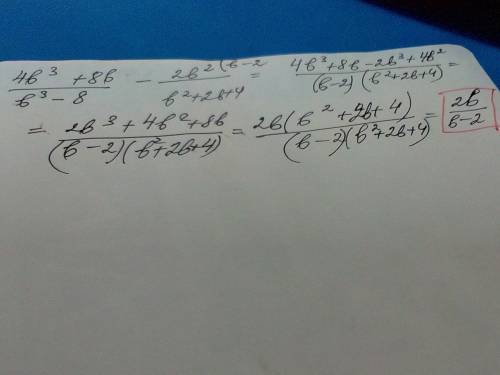 (4b³ + 8b)/(b³ - 8) - (2b² (b-2)/(b² + 2b + 4) = (4b³ + 8b - 2b³ + 4b²)/((b-2) (b² + 2b + 4)) =
= (2b³ + 4b² + 8b)/((b - 2)(b² + 2b + 4)) = (2b(b² + 2b + 4))/((b - 2)(b² + 2b + 4)) = 2b/(b-2)